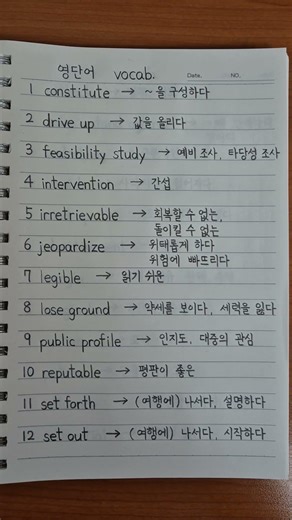 영단어 vocab.
Date. NO.
1 constitute → ~을 구성하다
2 drive up → 값을 올리다
3 feasibility study → 예비 조사, 타당성 조사
4 intervention → 간섭
5 irretrievable → 회복할 수 없는,
돌이킬 수 없는
6 jeopardize → 위태롭게 하다
위험에 빠뜨리다
7 legible → 읽기 쉬운
8 lose ground → 약세를 보이다, 세력을 잃다
9 public profile → 인지도, 대중의 관심
10 reputable → 평판이 좋은
11 set forth → (여행에) 나서다, 설명하다
12 set out → (여행에) 나서다, 시작하다